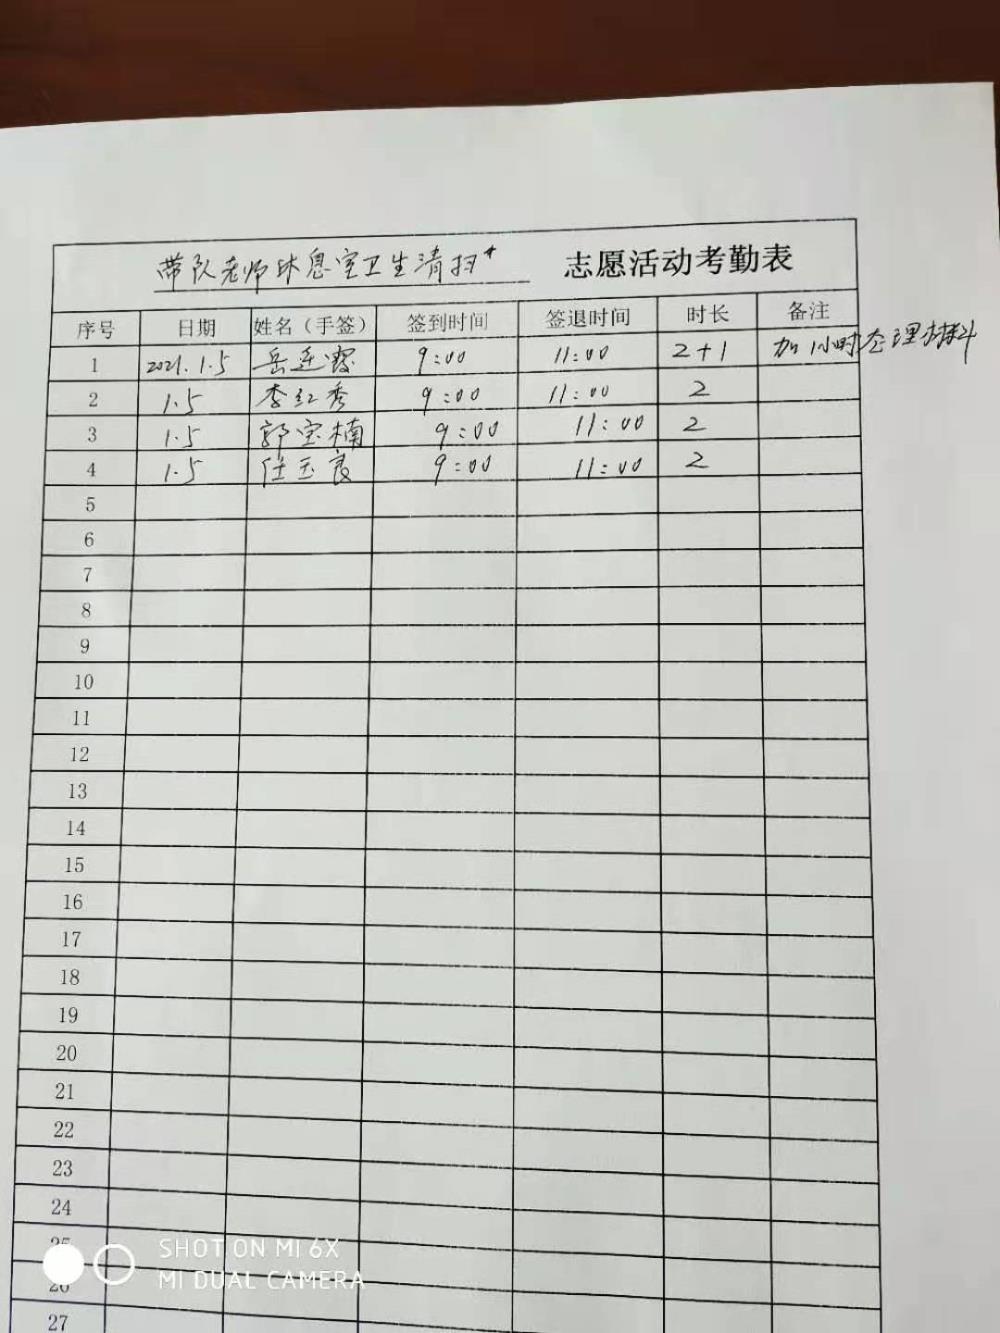 带队老师休息室卫生清扫 志愿活动考勤表
序号 日期 姓名（手签） 签到时间 签退时间 时长 备注
1 2021.1.5 岳连霞 9:00 11:00 2+1 加1小时整理材料
2 1.5 李红秀 9:00 11:00 2
3 1.5 郭宝楠 9:00 11:00 2
4 1.5 任玉良 9:00 11:00 2
5
6
7
8
9
10
11
12
13
14
15
16
17
18
19
20
21
22
23
24
25
26
27
SHOT ON MI 6X
MI DUAL CAMERA